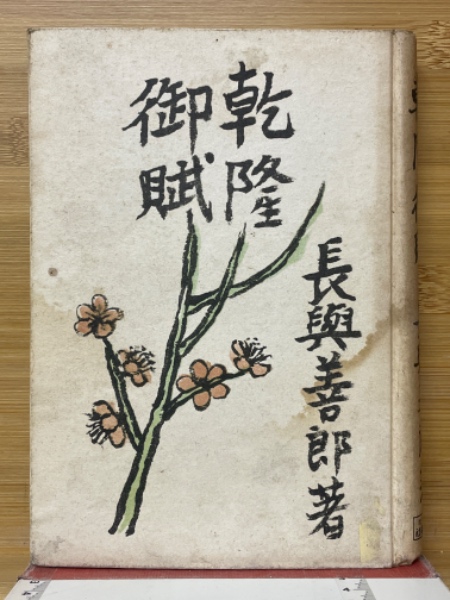 乾隆
御賦
長與善郎著